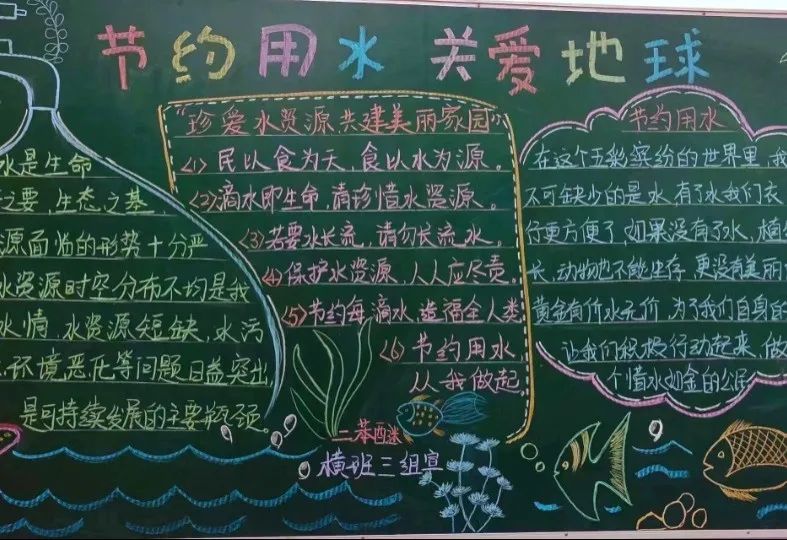 节约用水 关爱地球
水是生命
之要,生态之基
源面临的形势十分严
水资源时空分布不均是我
水情,水资源短缺,水污
环境恶化等问题日益突出,
是可持续发展的主要瓶颈。
"珍爱水资源共建美丽家园"
<1> 民以食为天,食以水为源。
<2>滴水即生命,请珍惜水资源。
<3>若要水长流,请勿长流水。
<4>保护水资源,人人应尽责。
<5>节约每滴水,造福全人类
<6>节约用水,
从我做起。
横班三组宣
节约用水
在这个五彩缤纷的世界里,我
不可缺少的是水,有了水我们衣
行更方便了,如果没有了水,植
长,动物也不能生存,更没有美丽
黄金有价水无价,为了我们自身的
让我们积极行动起来,做
个惜水如金的公民